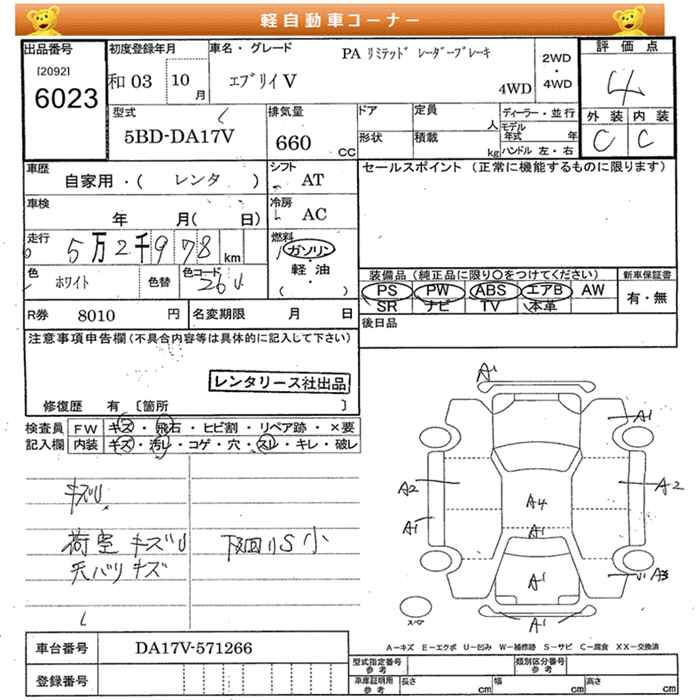 軽自動車コーナー
出品番号
[2092]
6023
初度登録年月
和 03 10 月
車名・グレード
PA リミテッド レーダーブレーキ
エブリイV
4WD
2WD
・
4WD
評価点
4
外装 内装
C C
型式
5BD-DA17V
排気量
660 CC
ドア
定員
人
形状
積載
kg
ディーラー・並行
モデル年式 年
ハンドル 左・右
車歴
自家用・( レンタ )
シフト
AT
セールスポイント (正常に機能するものに限ります)
車検
年 月( 日)
冷房
AC
走行
5万2千978 km
燃料
ガソリン
・
軽・油
( ・ )
色
ホワイト
色替
色コード
26U
装備品 (純正品に限り〇をつけてください)
PS PW ABS エアB AW
SR ナビ TV 本革
新車保証書
有・無
R券 8010 円
名変期限 月 日
後日品
注意事項申告欄 (不具合内容等は具体的に記入して下さい)
レンタリース社出品
修復歴 有 [箇所 ]
検査員
記入欄
FW キズ・飛石・ヒビ割・リペア跡・×要
内装 キズ・汚レ・コゲ・穴・スレ・キレ・破レ
キズU
荷室 キズU
下回りS小
天バリキズ
A1
A1
A2
A2
A1
A4
A1
A1
A3
A1
スペアー
A-キズ E-エクボ U-凹み W-補修跡 S-サビ C-腐食 XX-交換済
車台番号
DA17V-571266
登録番号
型式指定番号
参考
類別区分番号
参考
車庫証明用
参考
長さ cm
幅 cm
高さ cm